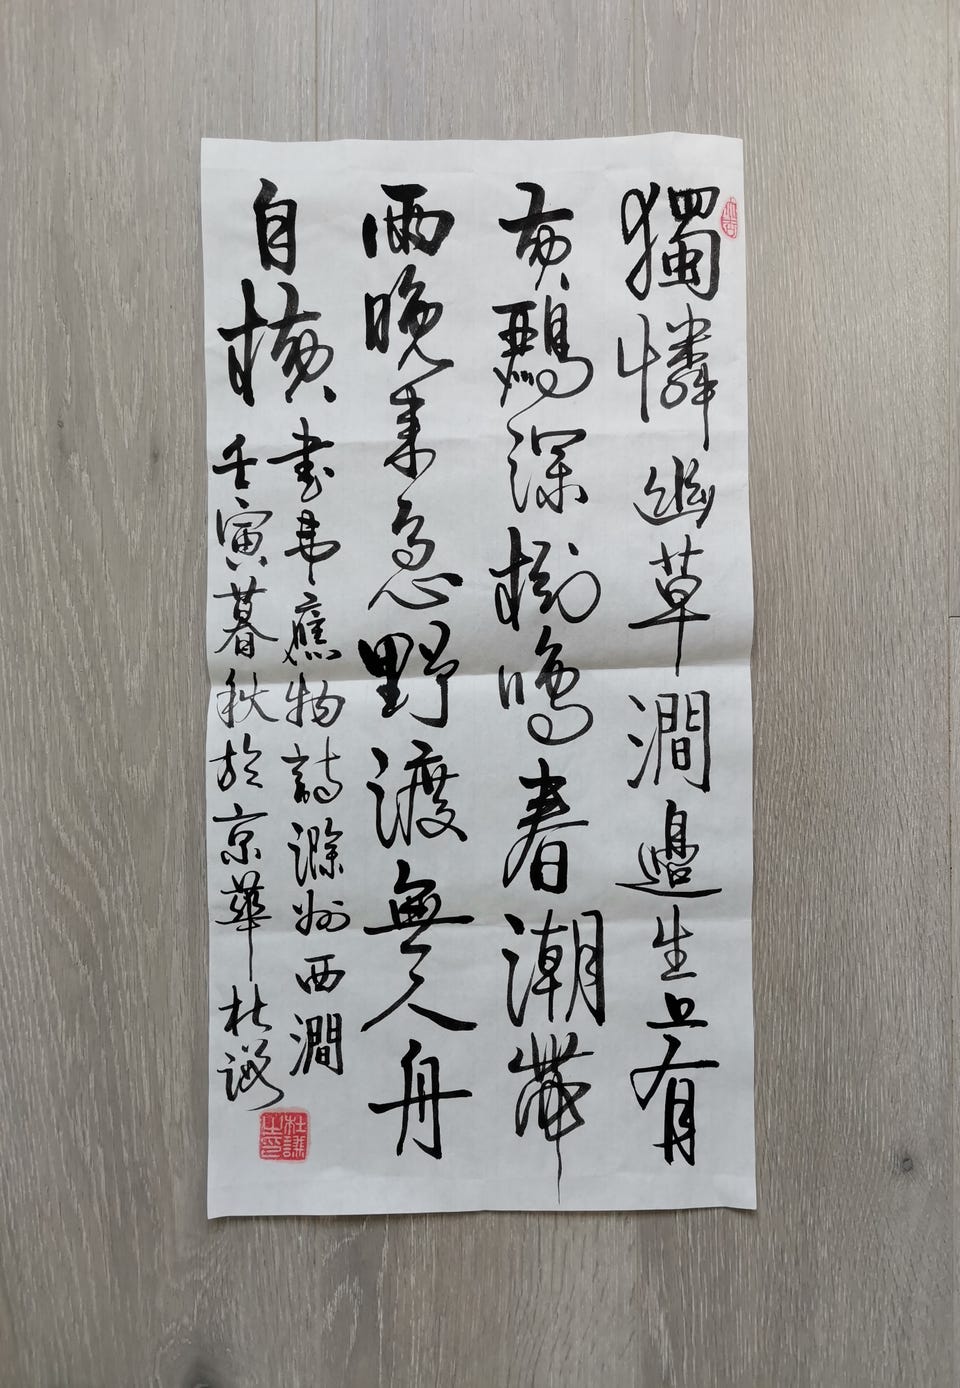 獨憐幽草澗邊生上有
黃鸝深樹鳴春潮帶
雨晚来急野渡無人舟
自橫
書韋應物詩滁州西澗
壬寅暮秋於京華杜